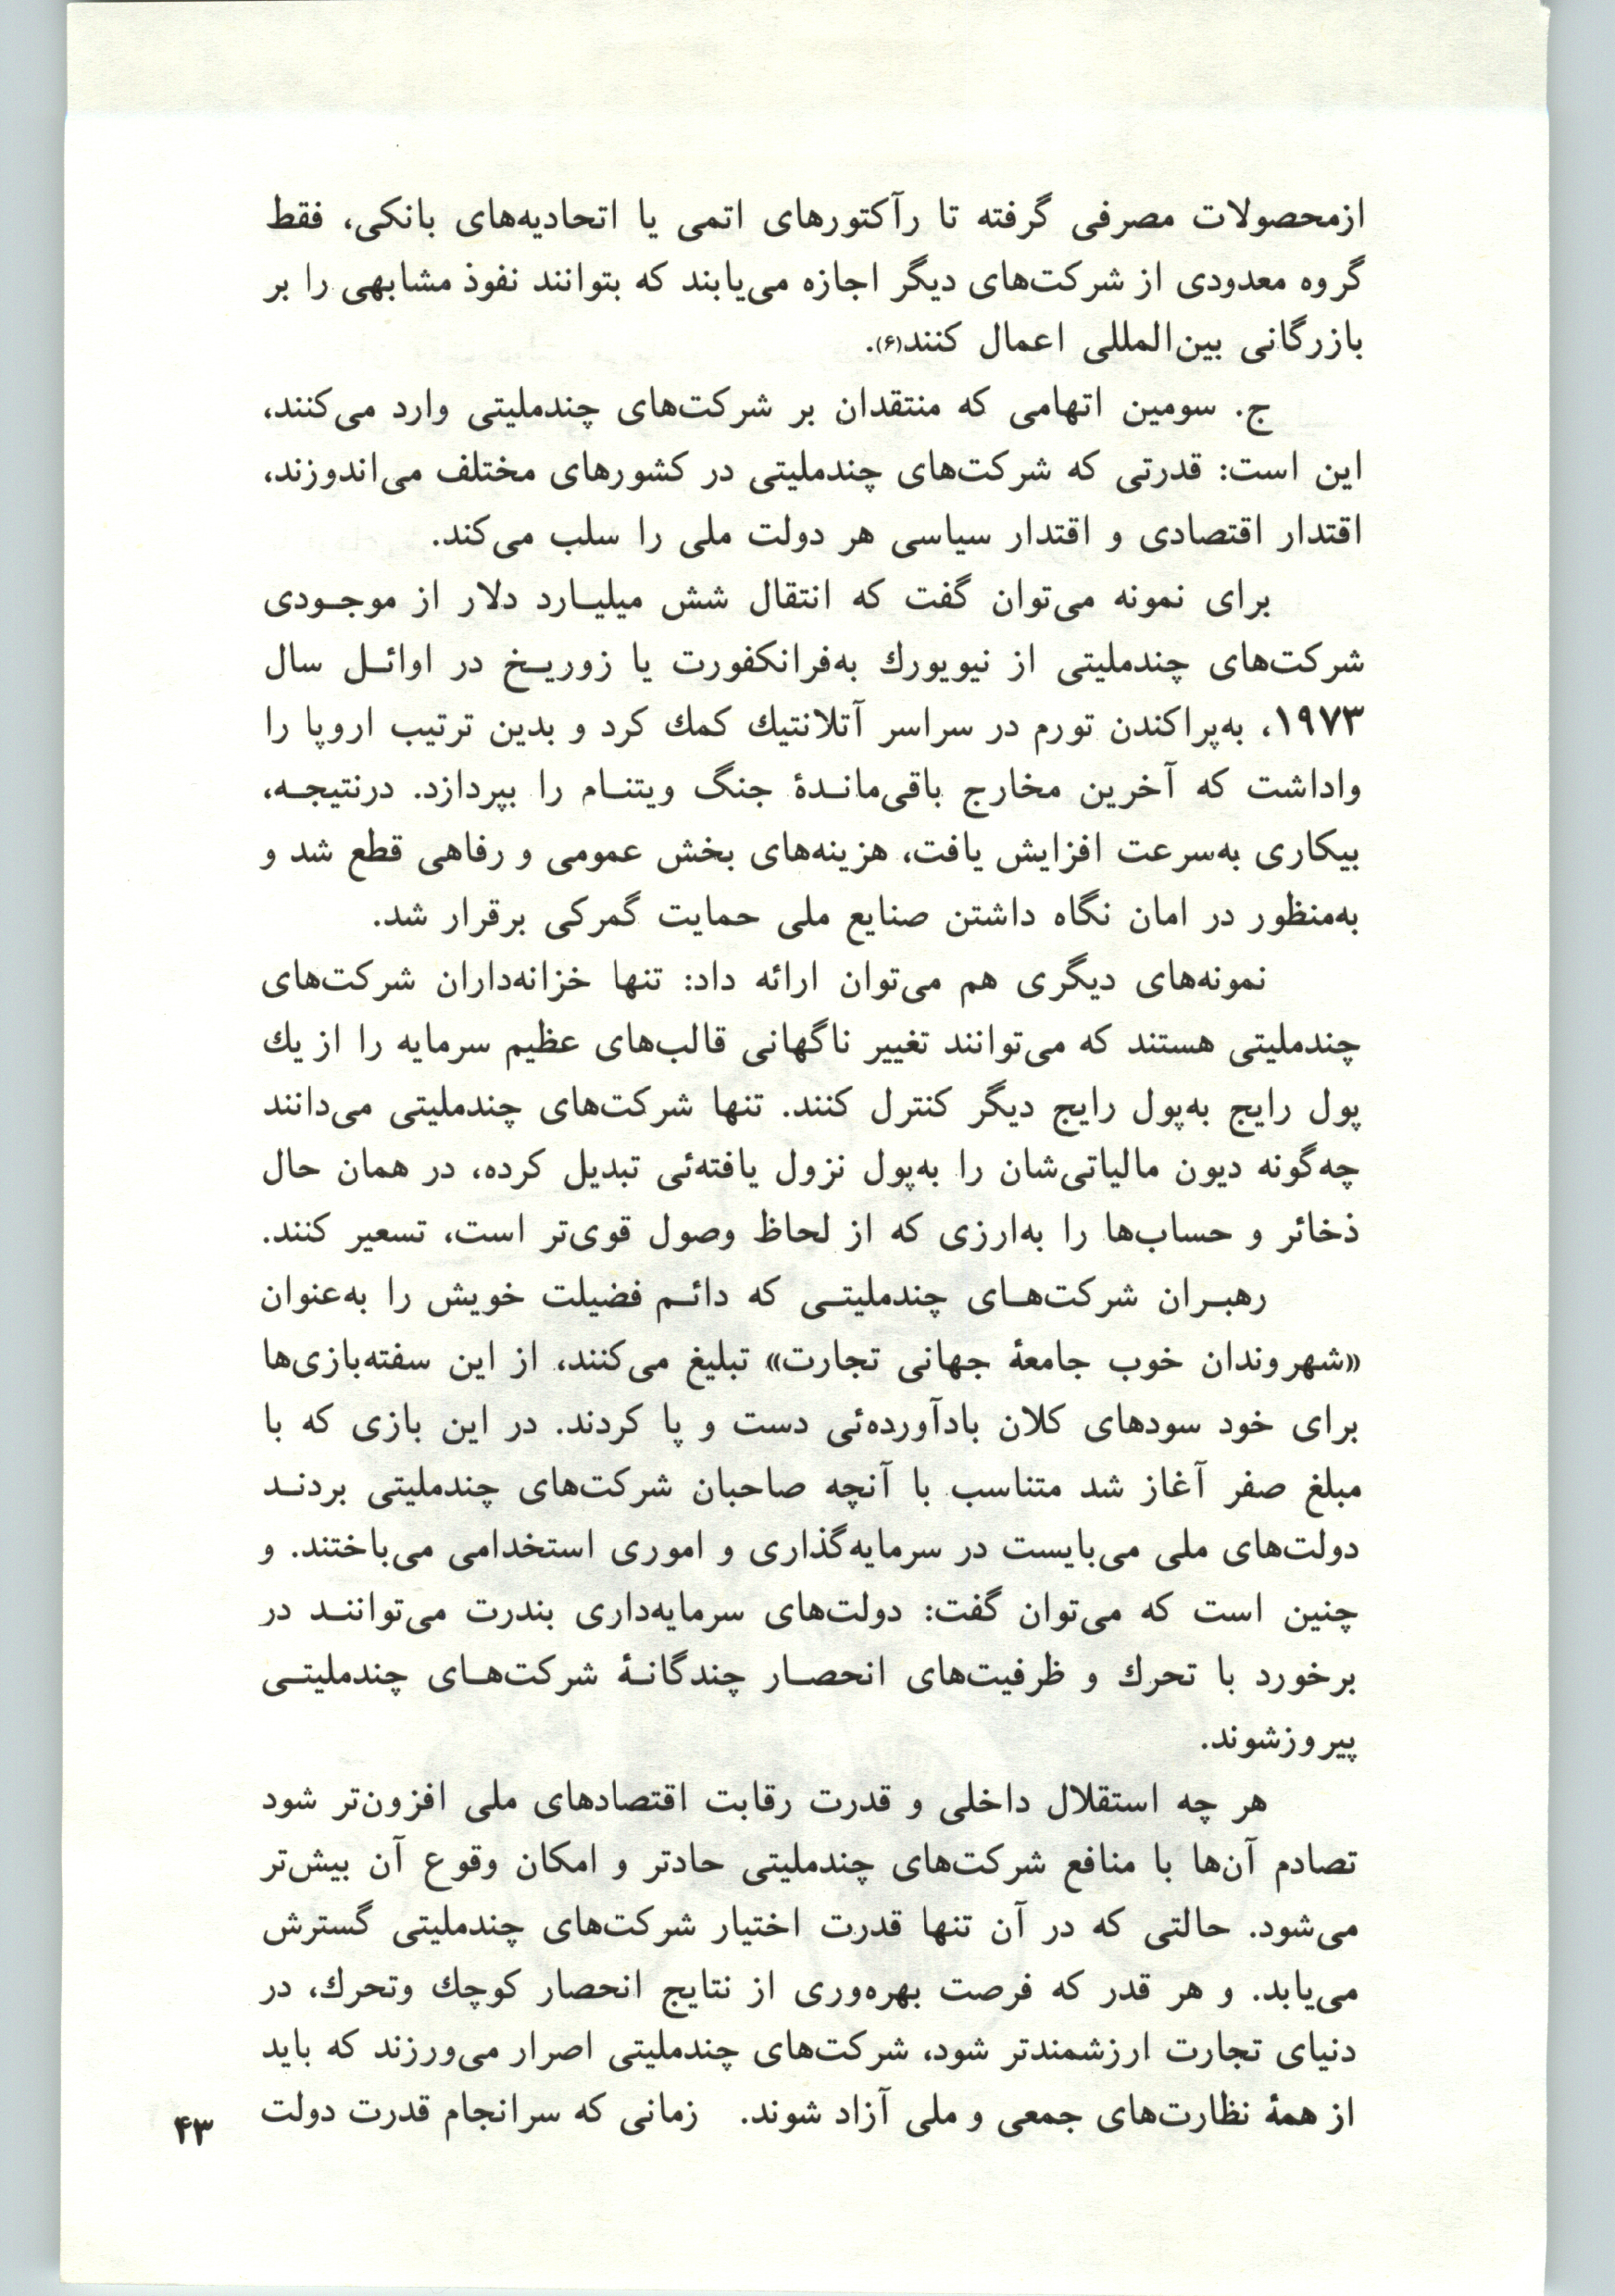 ازمحصولات مصرفی گرفته تا رآکتورهای اتمی یا اتحادیه‌های بانکی، فقط
گروه معدودی از شرکت‌های دیگر اجازه می‌یابند که بتوانند نفوذ مشابهی را بر
بازرگانی بین‌المللی اعمال کنند(۶).
ج. سومین اتهامی که منتقدان بر شرکت‌های چندملیتی وارد می‌کنند،
این است: قدرتی که شرکت‌های چندملیتی در کشورهای مختلف می‌اندوزند،
اقتدار اقتصادی و اقتدار سیاسی هر دولت ملی را سلب می‌کند.
برای نمونه می‌توان گفت که انتقال شش میلیـارد دلار از موجـودی
شرکت‌های چندملیتی از نیویورك به‌فرانکفورت یا زوریـخ در اوائـل سال
۱۹۷۳، به‌پراکندن تورم در سراسر آتلانتیك کمك کرد و بدین ترتیب اروپا را
واداشت که آخرین مخارج باقی‌مانـدهٔ جنگ ویتنـام را بپردازد. درنتیجـه،
بیکاری به‌سرعت افزایش یافت، هزینه‌های بخش عمومی و رفاهی قطع شد و
به‌منظور در امان نگاه داشتن صنایع ملی حمایت گمرکی برقرار شد.
نمونه‌های دیگری هم می‌توان ارائه داد: تنها خزانه‌داران شرکت‌های
چندملیتی هستند که می‌توانند تغییر ناگهانی قالب‌های عظیم سرمایه را از یك
پول رایج به‌پول رایج دیگر کنترل کنند. تنها شرکت‌های چندملیتی می‌دانند
چه‌گونه دیون مالیاتی‌شان را به‌پول نزول یافته‌ئی تبدیل کرده، در همان حال
ذخائر و حساب‌ها را به‌ارزی که از لحاظ وصول قوی‌تر است، تسعیر کنند.
رهبـران شرکت‌هـای چندملیتـی که دائـم فضیلت خویش را به‌عنوان
«شهروندان خوب جامعهٔ جهانی تجارت» تبلیغ می‌کنند، از این سفته‌بازی‌ها
برای خود سودهای کلان بادآورده‌ئی دست و پا کردند. در این بازی که با
مبلغ صفر آغاز شد متناسب با آنچه صاحبان شرکت‌های چندملیتی بردنـد
دولت‌های ملی می‌بایست در سرمایه‌گذاری و اموری استخدامی می‌باختند. و
چنین است که می‌توان گفت: دولت‌های سرمایه‌داری بندرت می‌تواننـد در
برخورد با تحرك و ظرفیت‌های انحصـار چندگانـهٔ شرکت‌هـای چندملیتـی
پیروزشوند.
هر چه استقلال داخلی و قدرت رقابت اقتصادهای ملی افزون‌تر شود
تصادم آن‌ها با منافع شرکت‌های چندملیتی حادتر و امکان وقوع آن بیش‌تر
می‌شود. حالتی که در آن تنها قدرت اختیار شرکت‌های چندملیتی گسترش
می‌یابد. و هر قدر که فرصت بهره‌وری از نتایج انحصار کوچك وتحرك، در
دنیای تجارت ارزشمندتر شود، شرکت‌های چندملیتی اصرار می‌ورزند که باید
از همهٔ نظارت‌های جمعی و ملی آزاد شوند. زمانی که سرانجام قدرت دولت
۴۳